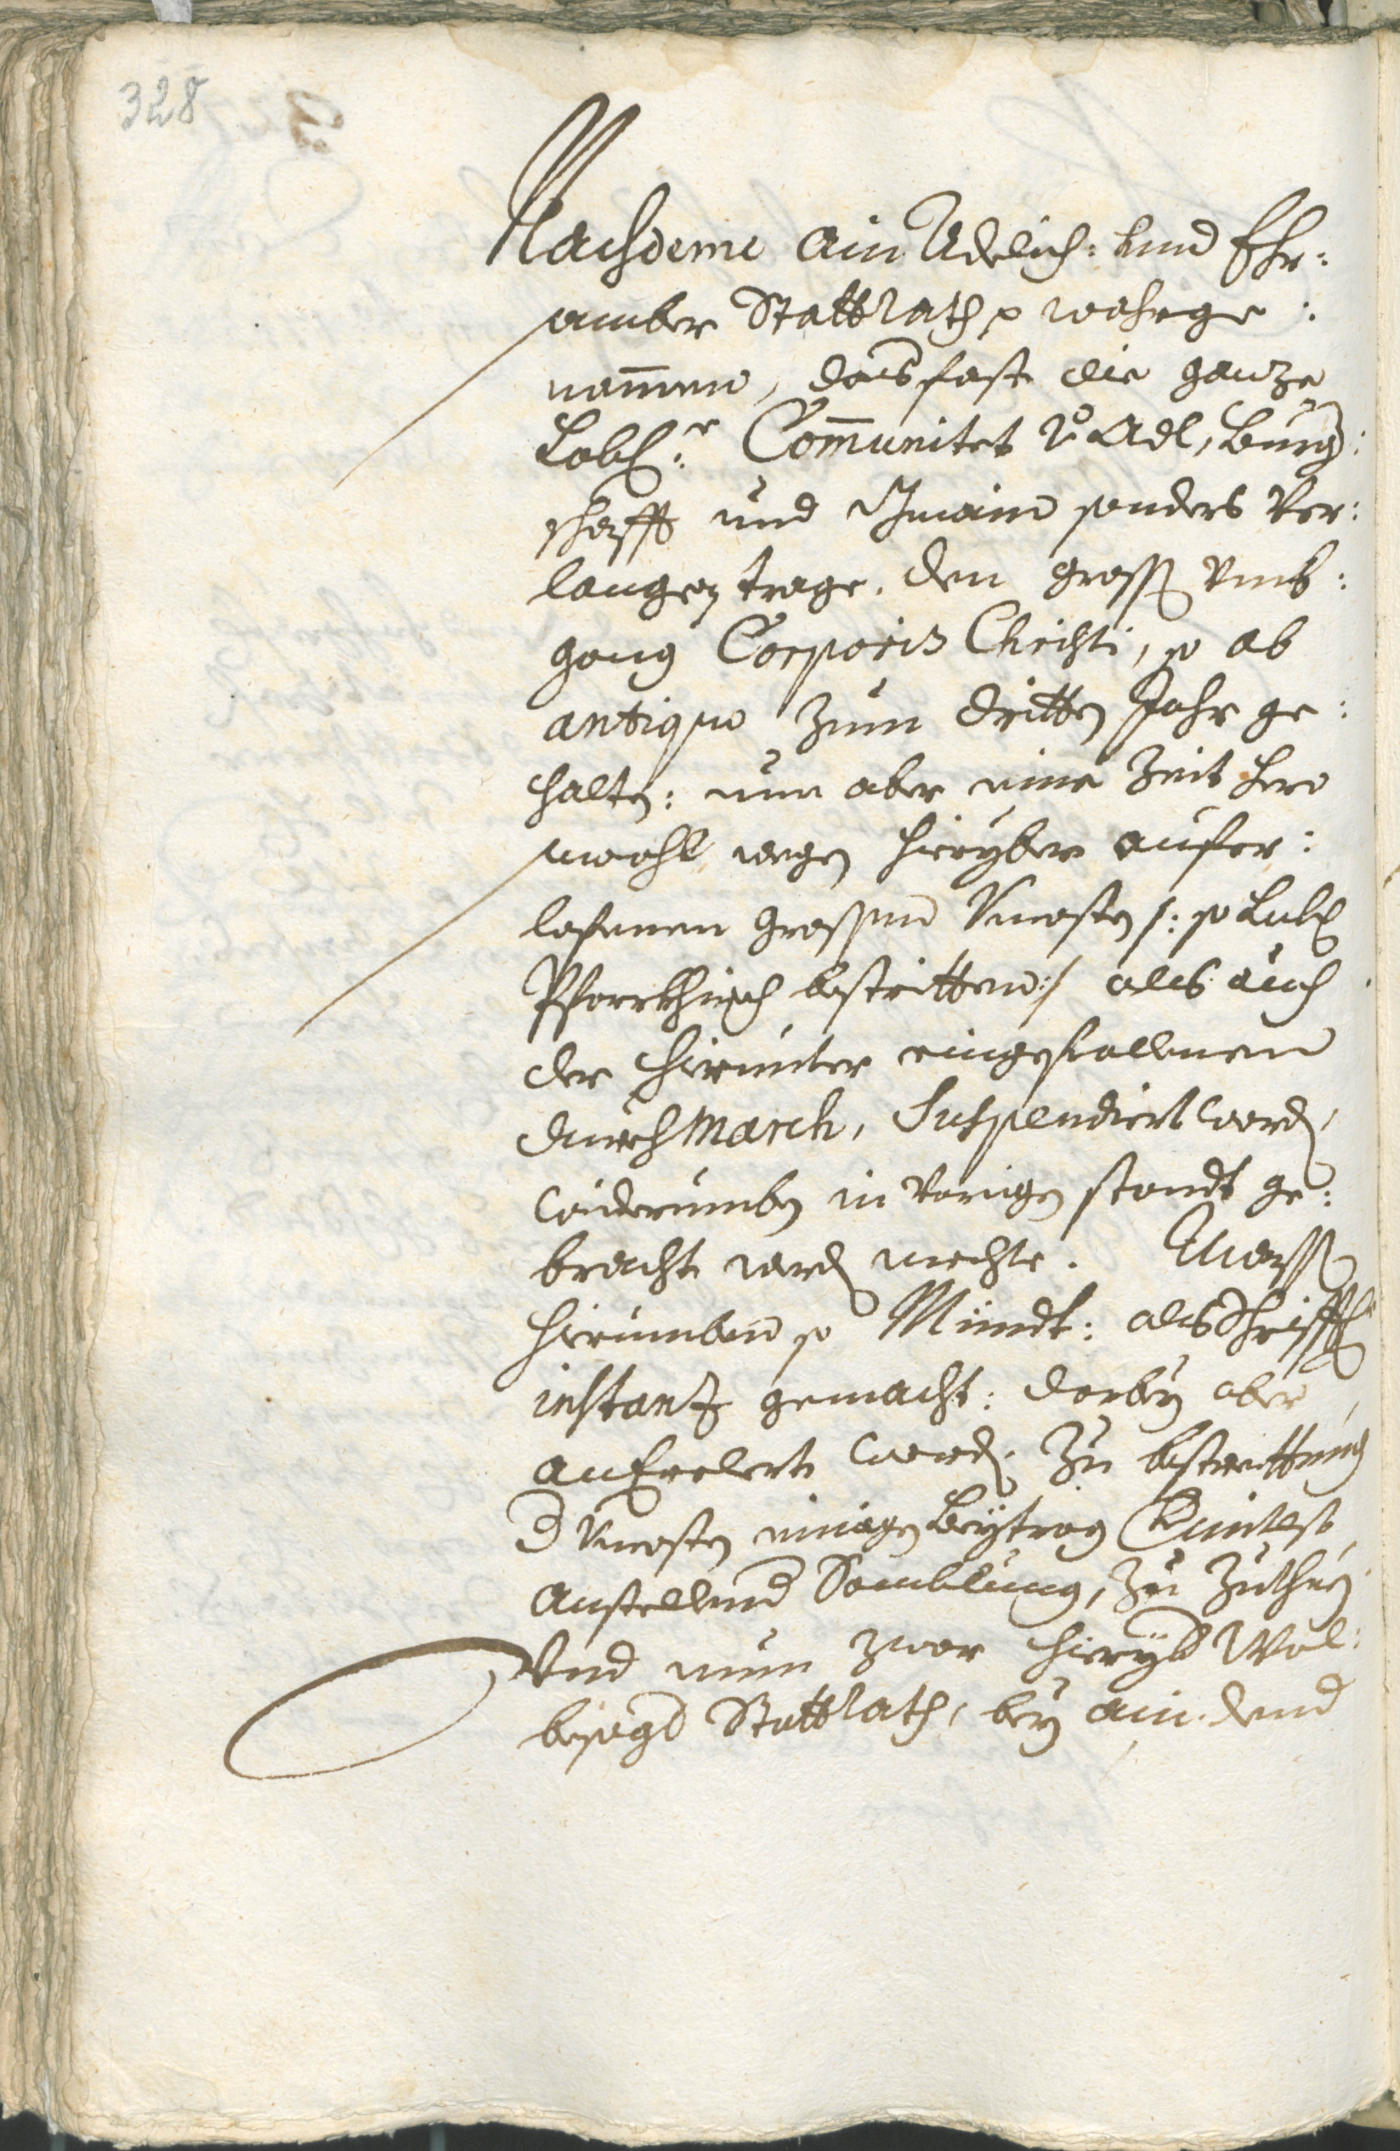 328
Nachdeme ain Adelich: und Ehr:
samber Stattrath p wahrge:
nommen, dass fast die ganze
Lobl:r Communitet vo Adl, Burg:
schafft und Gmain sonders Ver:
langen trage, den gross Umb:
gang Corporis Christi, so ab
antiquo zum dritten Jahr ge:
halten: nun aber eine Zeit hero
sowohl wegen hieryber aufer:
lofenen grossen Uncosten /: so Lobl
Pfarrkhirch bestritten :/ als auch
der hierunter eingefallenen
durch March, Suspendiert word,
widerumben in vorigen standt ge:
bracht werd mechte. Mass
hierumben so Mündt: als Schrifftl
instanz gemacht: darbey aber
anErclert word, zu bestreittung
d Uncosten einigen Beytrag
anstellend Samblung, zu zuthuen
Und nun zwar hieryb Wol:
besagd Stattrath, bey ain: und